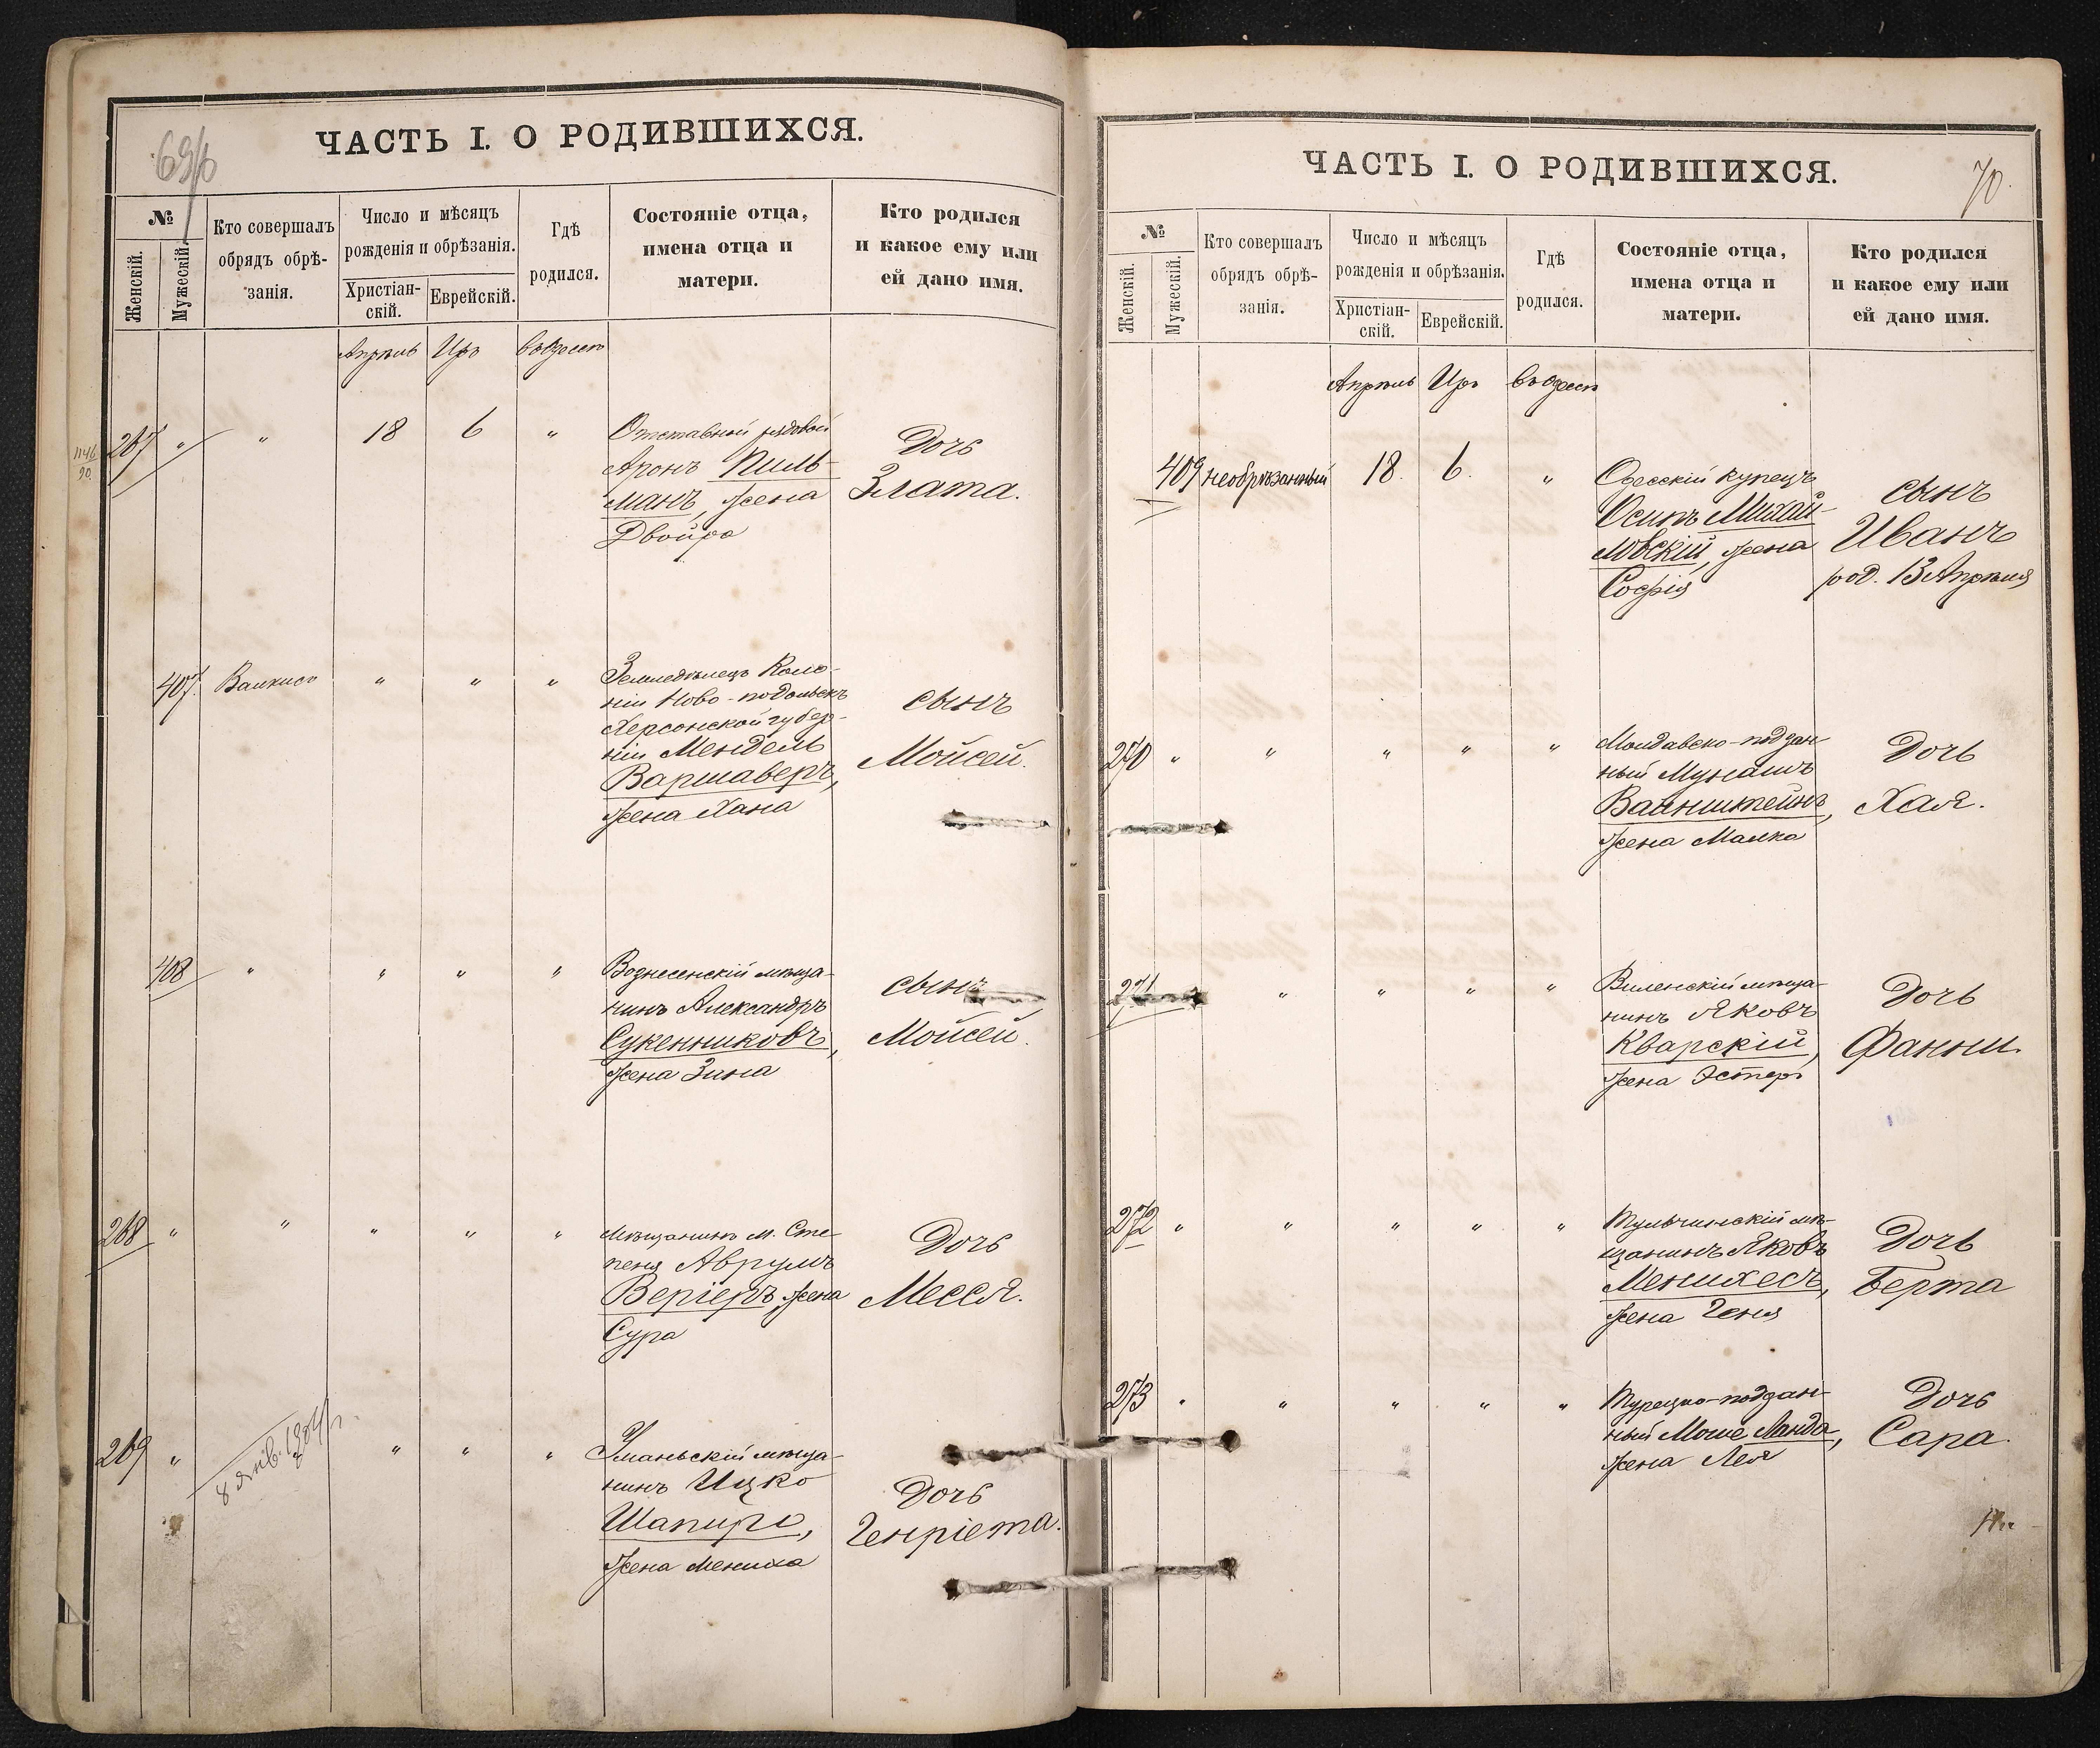 ЧАСТЬ I. О РОДИВШИХСЯ.
№
Женскій.
Мужескій.
Кто совершалъ
обрядъ обрѣ-
занія.
Число и мѣсяцъ
рожденія и обрѣзанія.
Христіан-
скій.
Еврейскій.
Гдѣ
родился.
Состояніе отца,
имена отца и
матери.
Кто родился
и какое ему или
ей дано имя.
Апрѣль Иръ въ Одессѣ
267 " " 18 6 "
Отставной рядовой
Аронъ Пиль-
манъ, жена
Двойра
Дочь
Злата.
407. " " "
Земледѣлецъ Коло-
ніи Ново-подольскъ
Херсонской губер-
ніи Мендель
Варшаверъ,
жена Хана
сынъ
Мойсей.
408 " " " "
Вознесенскій мѣща-
нинъ Александръ
Сукенниковъ,
жена Зина
сынъ
Мойсей.
268 " " " " "
Мѣщанинъ м. Сте-
пеня Аврумъ
Веріеръ, жена
Сура
Дочь
Месся.
269 " " " "
8 янв. 1904 г.
Уманьскій мѣща-
нинъ Ицко
Шапиро,
жена Мениха
Дочь
Генріета.
ЧАСТЬ I. О РОДИВШИХСЯ.
70.
№
Женскій.
Мужескій.
Кто совершалъ
обрядъ обрѣ-
занія.
Число и мѣсяцъ
рожденія и обрѣзанія.
Христіан-
скій.
Еврейскій.
Гдѣ
родился.
Состояніе отца,
имена отца и
матери.
Кто родился
и какое ему или
ей дано имя.
Апрѣль Иръ въ Одессѣ
409 необрѣзанный 18. 6. "
Одесскій купецъ
Осипъ Михай-
ловскій, жена
Софія
сынъ
Иванъ
род. 13 Апрѣля
270 " " " " "
Молдавско-поддан-
ный
Ванштейнъ,
жена Малка
Дочь
Хая.
271 " " " "
Виленскій мѣща-
нинъ Яковъ
Кварскій,
жена Эстеръ
Дочь
Фанни.
272 " " " " "
Тульчинскій мѣ-
щанинъ Яковъ
Менихесъ,
жена Геня
Дочь
Берта
273 " " " " "
Турецко-поддан-
ный Моше Ланда,
жена Лея
Дочь
Сара.